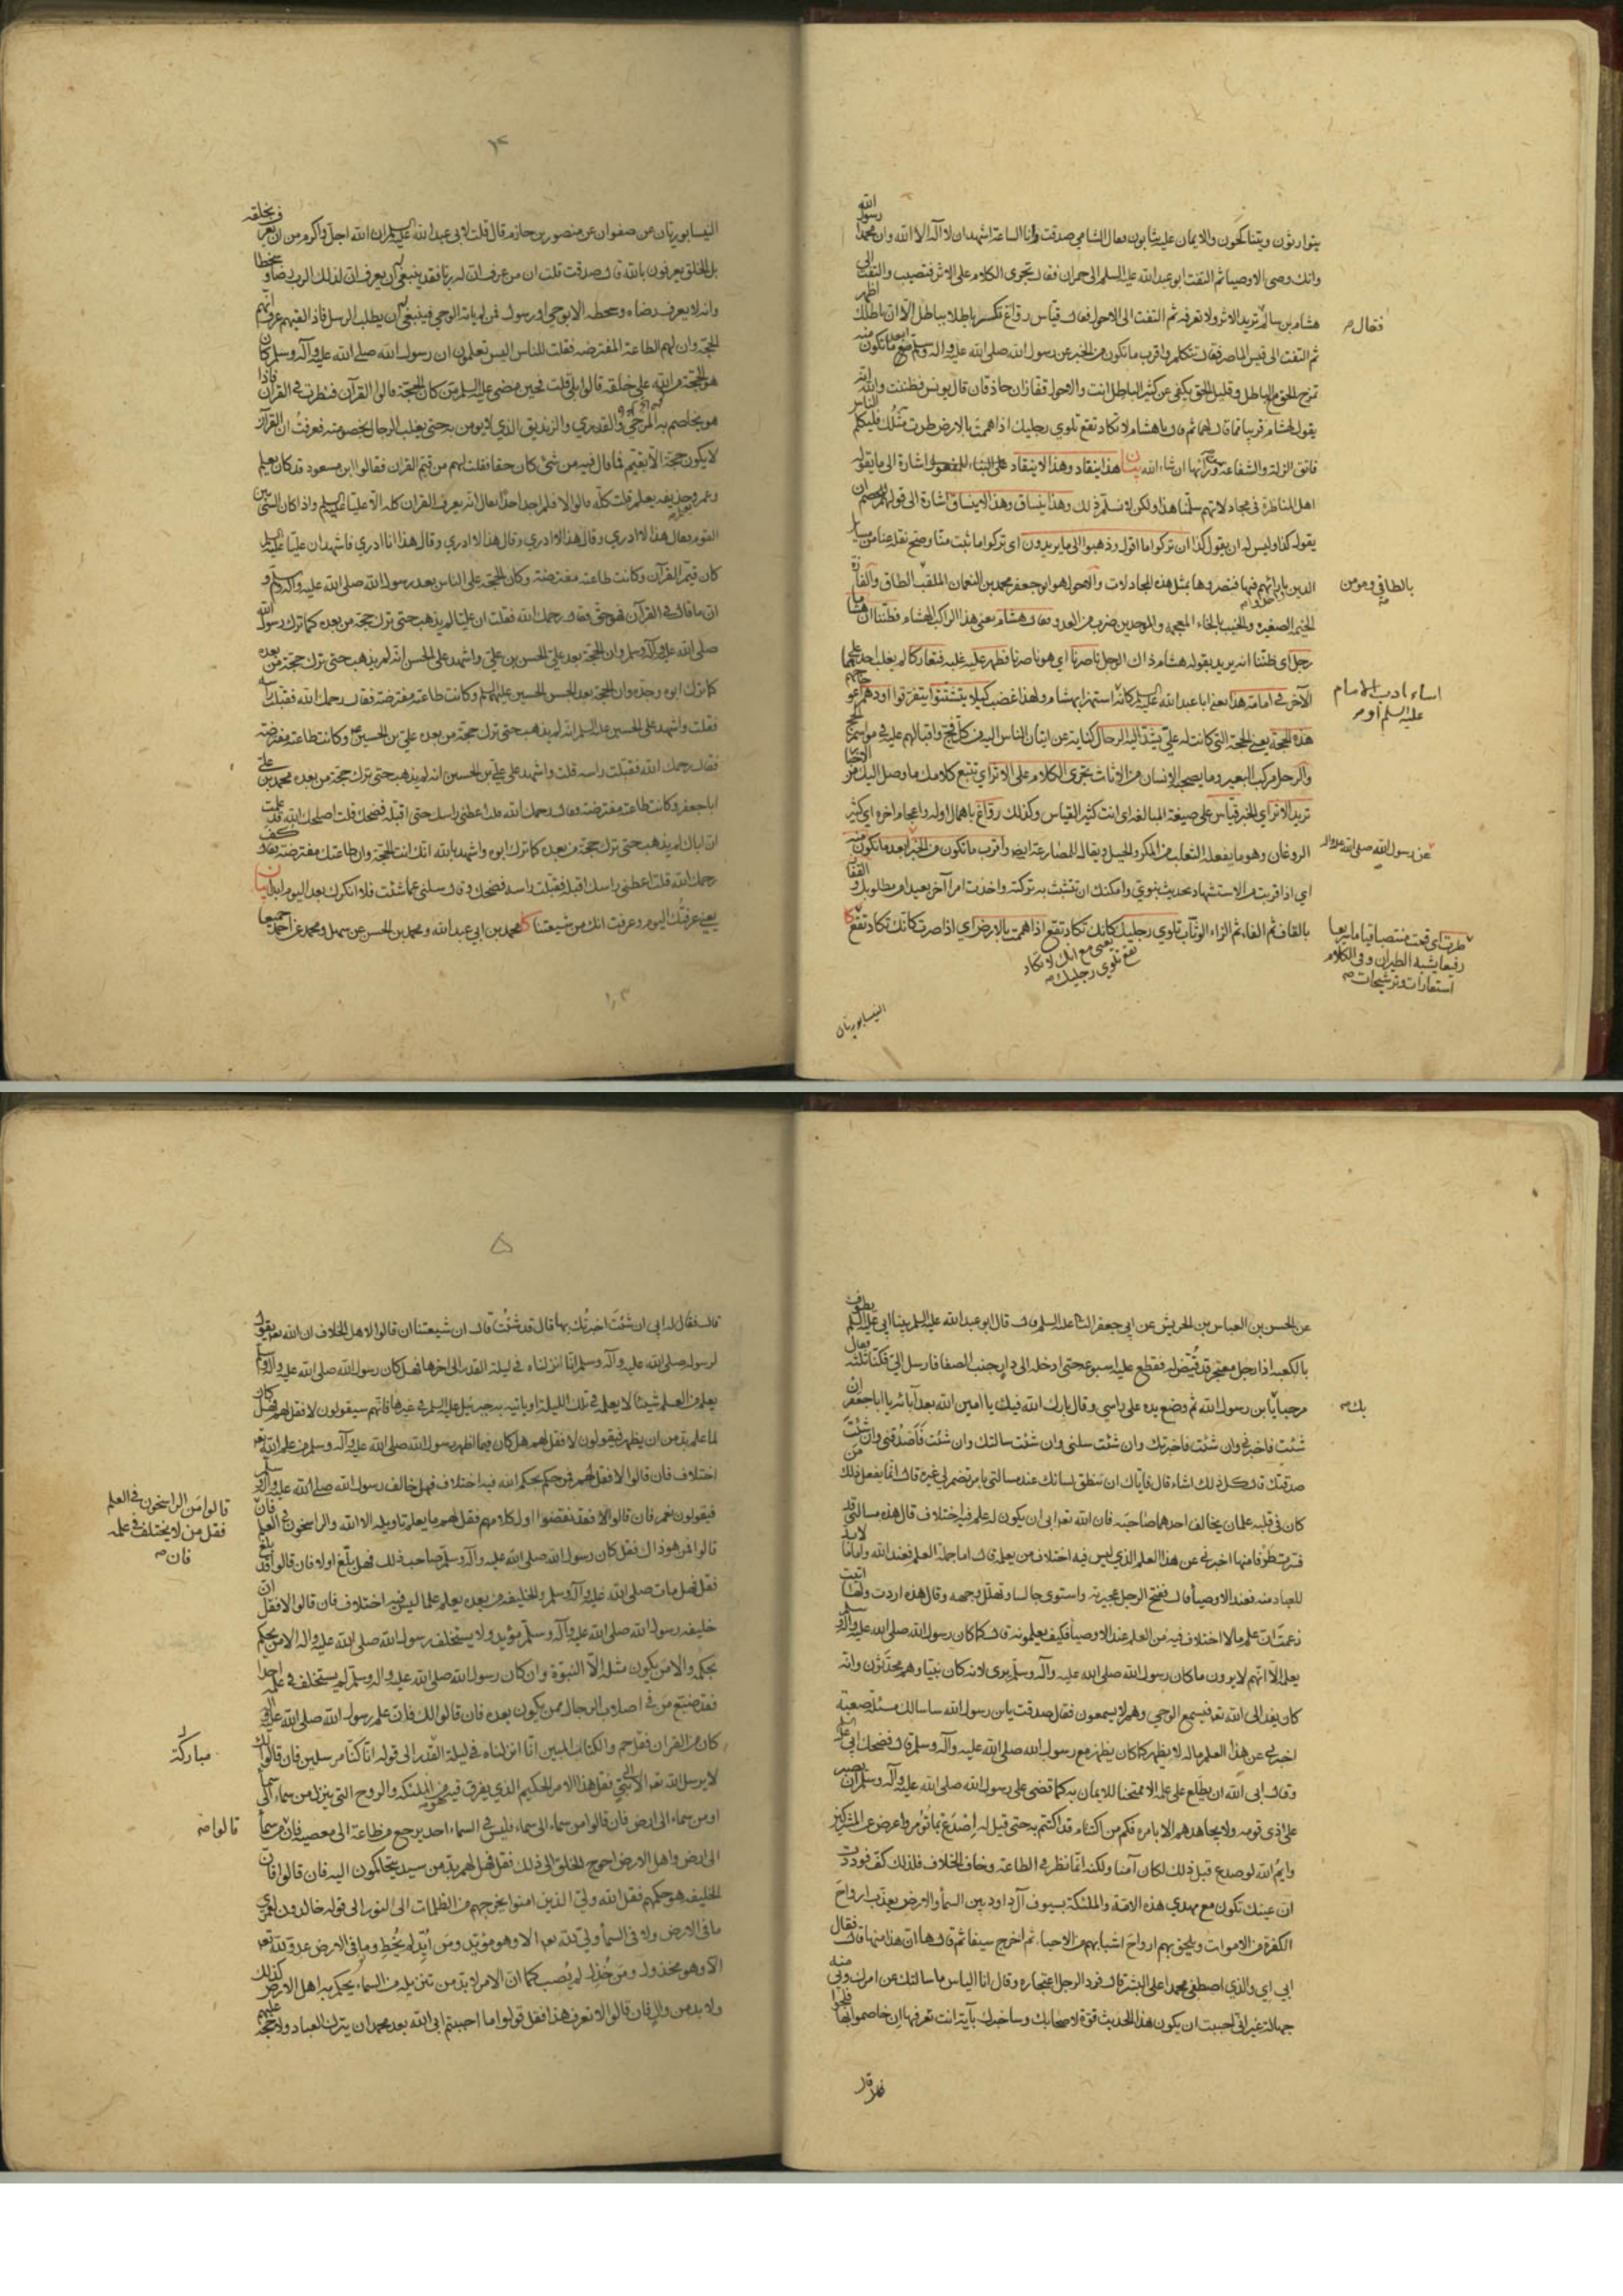 يتوارثون ويتناكحون والايمان عليه يثابون فقال الشامي صدقت وانا الساعة اشهد ان لا اله الا الله وان محمدا رسول الله
وانك وصي الاوصيا ثم التفت ابو عبد الله عليه السلم الى حمران فقال تجرى الكلام على الاثر فتصيب والتفت الى
هشام بن سالم تريد الاثر ولا تعرفه ثم التفت الى الاحول فقال قياس رواغ تكسر باطلا بباطل الا ان باطلك اظهر
ثم التفت الى قيس الماصر فقال تتكلم واقرب ما تكون من الخبر عن رسول الله صلى الله عليه واله وسلم ابعد ما تكون منه
تمزج الحق مع الباطل وقليل الحق يكفي عن كثير الباطل انت والاحول قفازان حاذقان قال يونس فظننت والله انه
يقول لهشام قريبا مما قال لهما ثم قال يا هشام لا تكاد تقع تلوي رجليك اذا هممت بالارض طرت مثلك فليكلم الناس
فاتق الزلة والشفاعة من ورآئها ان شاء الله بيان هذا ينقاد وهذا لا ينقاد على البناء للمفعول اشارة الى ما يقوله
اهل المناظرة في مجادلاتهم سلمنا هذا ولكن لا نسلم ذلك وهذا ينساق وهذا لا ينساق اشارة الى قولهم للخصم ان
يقول كذا وليس له ان يقول كذا ان تركوا ما اقول وذهبوا الى ما يريدون اى تركوا ما ثبت منا وصح نقله عنا من مسايل
الدين
والاحول هو ابو جعفر محمد بن النعمان الملقب الطاق والفازة
الخيمة الصغيرة والخبب بالخاء المعجمة والموحدين ضرب من العدو فقال هشام يعنى هذا الراكب هشام فظننا ان هشاما
رجل اى ظننا انه يريد بقوله هشام ذاك الرجل ناصرنا اي هو ناصرنا فظهر عليه غلبه فتعاركا لم يغلب احدهما على
الآخر
هذه الحجة يعنى الحجة التي كانت لعلي يشد اليه الرحال كناية عن اتيان الناس اليه من كل فج واقبالهم عليه في مواسم الحج
والرحل مركب البعير وما يصحبه الانسان من الاثاث تجرى الكلام على الاثر اي تتبع كلامك ما وصل اليك من الاخبار
تريد الاثر اي الخبر قياس على صيغة المبالغة اى انت كثير القياس وكذلك رواغ باهمال اوله واعجام اخره اي كثير
الروغان وهو ما يفعله الثعلب من المكر والحيل ويقال للمصارعة ايضا واقرب ما تكون من الخبر ابعد ما تكون منه
اي اذا قربت من الاستشهاد بحديث نبوي وامكنك ان تتشبث به تركته واخذت امرا آخر بعيدا من مطلوبك والقفاز
بالقاف ثم الفاء ثم الزاء الوثاب تلوي رجليك كانك تكاد تقع اذا هممت بالارض اي اذا صرت كانك تكاد تقع
يعنى مع انك لا تكاد
تقع تلوي رجليك صح
فقال صح
بالطاقي ومومن
اساء ادب الامام
عليه السلم او مر
عن رسول الله صلى الله عليه واله
طرت اى قمت منتصبا قياما سريعا
رفيعا يشبه الطيران وفي الكلام
استعارات وترشيحات صح
النيسابوريان
النيسابوريان عن صفوان عن منصور بن حازم قال قلت لابي عبد الله عليه السلم ان الله اجل واكرم من ان يعرف بخلقه
بل الخلق يعرفون بالله قال صدقت قلت ان من عرف ان له ربا فقد ينبغي له ان يعرف ان لذلك الرب رضا وسخطا
وانه لا يعرف رضاه وسخطه الا بوحي او رسول فمن لم ياته الوحي فينبغي له ان يطلب الرسل فاذا لقيهم عرف انهم
الحجة وان لهم الطاعة المفترضة فقلت للناس اليس تعلمون ان رسول الله صلى الله عليه وآله وسلم كان
هو الحجة من الله على خلقه قالوا بلى قلت فحين مضى عليه السلم من كان الحجة قالوا القرآن فنظرت في القرآن فاذا
هو يخاصم به المرجئ والقدري والزنديق الذي لا يومن به حتى يغلب الرجال بخصومته فعرفت ان القرآن
لا يكون حجة الا بقيم فما قال فيه من شئ كان حقا فقلت لهم من قيم القران فقالوا ابن مسعود قد كان يعلم
وعمر وحذيفه يعلم قلت كله قالوا لا فلم اجد احدا يقال انه يعرف القران كله الا عليا عليه السلم واذا كان الشئ بين
القوم فقال هذا لا ادري وقال هذا لا ادري وقال هذا لا ادري وقال هذا انا ادري فاشهد ان عليا عليه السلم
كان قيم القرآن وكانت طاعته مفترضة وكان الحجة على الناس بعد رسول الله صلى الله عليه واله وسلم و
ان ما قال في القرآن فهو حق فقال رحمك الله فقلت ان عليا لم يذهب حتى ترك حجة من بعده كما ترك رسول الله
صلى الله عليه وآله وسلم وان الحجة بعد علي الحسن بن علي واشهد على الحسن انه لم يذهب حتى ترك حجة من بعده
كما ترك ابوه وجده وان الحجة بعد الحسن الحسين عليهما السلم وكانت طاعته مفترضة فقال رحمك الله فقبلت راسه
فقلت واشهد على الحسين عليه السلم انه لم يذهب حتى ترك حجة من بعده علي بن الحسين وكانت طاعته مفترضة
فقال رحمك الله فقبلت راسه قلت واشهد على علي بن الحسين انه لم يذهب حتى ترك حجة من بعده محمد بن علي
ابا جعفر وكانت طاعته مفترضة فقال رحمك الله قلت اعطني راسك حتى اقبله فضحك قلت اصلحك الله قد علمت
ان اباك لم يذهب حتى ترك حجة من بعده كما ترك ابوه واشهد بالله انك انت الحجة وان طاعتك مفترضة فقال كف
رحمك الله قلت اعطني راسك اقبله فقبلت راسه فضحك وقال سلني عما شئت فلا انكرك بعد اليوم ابدا بيان
يعنى عرفتك اليوم وعرفت انك من شيعتنا كا محمد بن ابي عبد الله ومحمد بن الحسن عن سهل ومحمد عن احمد جميعا
عن الحسن بن العباس بن الحريش عن ابي جعفر الثانى عليه السلم قال قال ابو عبد الله عليه السلم بينا ابي عليه السلم يطوف
بالكعبه اذا رجل معتجر قد قيض له فقطع عليه اسبوعه حتى ادخله الى دار جنب الصفا فارسل الي فكنا ثلثة فقال
مرحبا يا بن رسول الله ثم وضع يده على راسي وقال بارك الله فيك يا امين الله بعد آبائه يا ابا جعفر ان
شئت فاخبرني وان شئت فاخبرتك وان شئت سلني وان شئت سالتك وان شئت فاصدقني وان شئت
صدقتك قال كل ذلك اشاء قال فاياك ان ينطق لسانك عند مسالتي بامر تضمر لي غيره قال انما يفعل ذلك من
كان في قلبه علمان يخالف احدهما صاحبه فان الله تعالى ابى ان يكون له علم فيه اختلاف قال هذه مسالتي قد
فسرت طرفا منها اخبرني عن هذا العلم الذي ليس فيه اختلاف من يعلمه قال اما جملة العلم فعند الله واما ما لابد
للعباد منه فعند الاوصيأ قال ففتح الرجل عجيرته واستوى جالسا وتهلل وجهه وقال هذه اردت ولها اتيت
زعمت ان علم ما لا اختلاف فيه من العلم عند الاوصيأ فكيف يعلمونه قال كما كان رسول الله صلى الله عليه وآله وسلم
يعلمه الا انهم لا يرون ما كان رسول الله صلى الله عليه وآله وسلم يرى لانه كان نبيا وهم محدثون وانه
كان يفد الى الله تعالى فيسمع الوحي وهم لا يسمعون فقال صدقت يابن رسول الله ساسالك مسئلة صعبة
اخبرني عن هذا العلم ماله لا يظهر كما كان يظهر مع رسول الله صلى الله عليه وآله وسلم قال فضحك ابي عليه السلم
وقال ابى الله ان يطلع على علمه الا ممتحنا للايمان به كما قضى على رسول الله صلى الله عليه وآله وسلم ان يصبر
على اذى قومه ولا يجاهدهم الا بامره فكم من اكتتام قد اكتتم به حتى قيل له اصدع بما تؤمر واعرض عن المشركين
وايم الله لو صدع قبل ذلك لكان آمنا ولكنه انما نظر في الطاعة وخاف الخلاف فلذلك كف فوددت
ان عينك تكون مع مهدي هذه الامة والملئكة بسيوف آل داود بين السمأ والارض يعذب ارواح
الكفرة من الاموات ويلحق بهم ارواح اشباههم من الاحياء ثم اخرج سيفا ثم قال ها ان هذا منها قال فقال
ابي اي والذي اصطفى محمدا على البشر قال فرد الرجل اعتجاره وقال انا الياس ما سالتك عن امرك ولي منه
جهالة غير اني احببت ان يكون هذا الحديث قوة لاصحابك وساخبرك بآية انت تعرفها ان خاصموا بها فلجوا
بك صح
قال فقال له ابي ان شئت اخبرتك بها قال قد شئت قال ان شيعتنا ان قالوا لاهل الخلاف ان الله تعالى يقول
لرسوله صلى الله عليه وآله وسلم انا انزلناه في ليلة القدر الى اخرها فهل كان رسول الله صلى الله عليه وآله وسلم
يعلم من العلم شيئا لا يعلمه في تلك الليلة او ياتيه به جبرئيل عليه السلم في غيرها فانهم سيقولون لا فقل لهم فهل كان
لما علم بد من ان يظهر فيقولون لا فقل لهم هل كان فيما اظهر رسول الله صلى الله عليه وآله وسلم من علم الله تعالى
اختلاف فان قالوا لا فقل لهم فمن حكم بحكم الله فيه اختلاف فهل خالف رسول الله صلى الله عليه وآله وسلم
فيقولون نعم فان قالوا لا فقد نقضوا اول كلامهم فقل لهم ما يعلم تاويله الا الله والراسخون في العلم فان
قالوا فمن هو ذاك فقل كان رسول الله صلى الله عليه وآله وسلم صاحب ذلك فهل بلغ او لا فان قالوا قد بلغ
فقل فهل مات صلى الله عليه وآله وسلم والخليفه من بعده يعلم علما ليس فيه اختلاف فان قالوا لا فقل ان
خليفة رسول الله صلى الله عليه وآله وسلم مؤيد ولا يستخلف رسول الله صلى الله عليه واله الا من يحكم
بحكمه والا من يكون مثله الا النبوة وان كان رسول الله صلى الله عليه واله وسلم لم يستخلف في علمه احدا
فقد ضيع من في اصلاب الرجال ممن يكون بعده فان قالوا لك فان علم رسول الله صلى الله عليه وآله
كان من القران فقل حم والكتاب المبين انا انزلناه في ليلة القدر الى قوله انا كنا مرسلين فان قالوا لك
لا يرسل الله تعالى الا الى نبي فقل هذا الامر الحكيم الذي يفرق فيه هو من الملئكة والروح التي تنزل من سماء الى سماء
او من سماء الى ارض فان قالوا من سماء الى سماء فليس في السماء احد يرجع من طاعة الى معصيه فان من سمأ
الى ارض واهل الارض احوج الخلق الى ذلك فقل فهل لهم بد من سيد يتحاكمون اليه فان قالوا فان
الخليفه هو حكمهم فقل الله ولي الذين امنوا يخرجهم من الظلمات الى النور الى قوله خالدون لعمري
ما في الارض ولا في السمأ ولي لله تعالى الا وهو مؤيد ومن ايد لم يخط وما في الارض عدو لله تعالى
الا وهو مخذول ومن خذل لم يصب كما ان الامر لابد من تنزيله من السماء يحكم به اهل الارض كذلك
ولا بد من وال فان قالوا لا نعرف هذا فقل قولوا ما احببتم ابى الله بعد محمد ان يترك العباد ولا حجة عليهم
قالوا من الراسخون في العلم
فقل من لا يختلف في علمه
فان صح
مباركة
قالوا صح